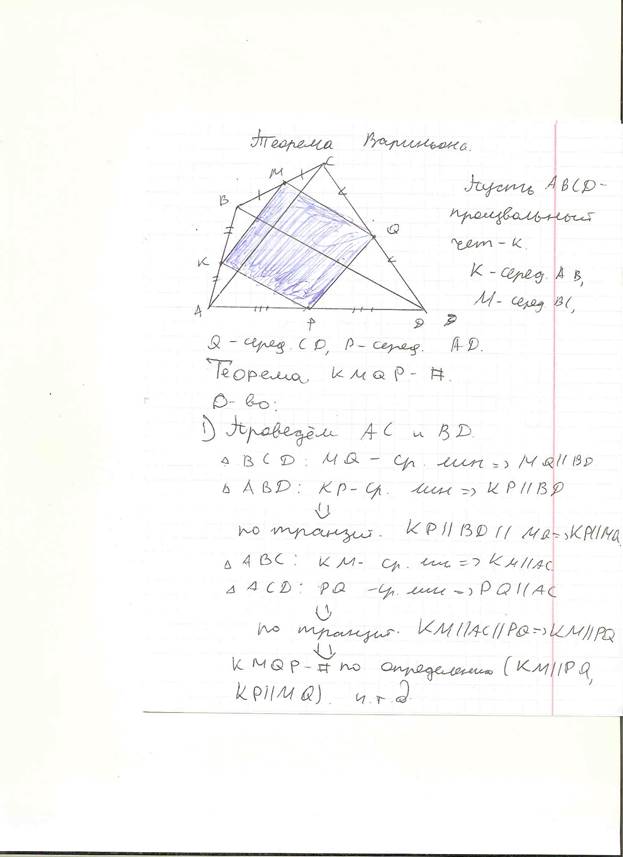 Теорема Вариньона.
C
M
B
Q
K
A
P
D
Пусть ABCD -
произвольный
чет-к.
K - серед. AB,
M - серед BC,
Q - серед. CD, P - серед. AD.
Теорема KMQP - #.
D-во:
1) Проведём AC и BD.
△ BCD: MQ - ср. лин => MQ ∥ BD
△ ABD: KP - ср. лин => KP ∥ BD
⇓
по транзит. KP ∥ BD ∥ MQ => KP ∥ MQ
△ ABC: KM - ср. лин => KM ∥ AC
△ ACD: PQ - ср. лин => PQ ∥ AC
⇓
по транзит. KM ∥ AC ∥ PQ => KM ∥ PQ
⇓
KMQP - # по определению (KM ∥ PQ,
KP ∥ MQ). ч.т.д